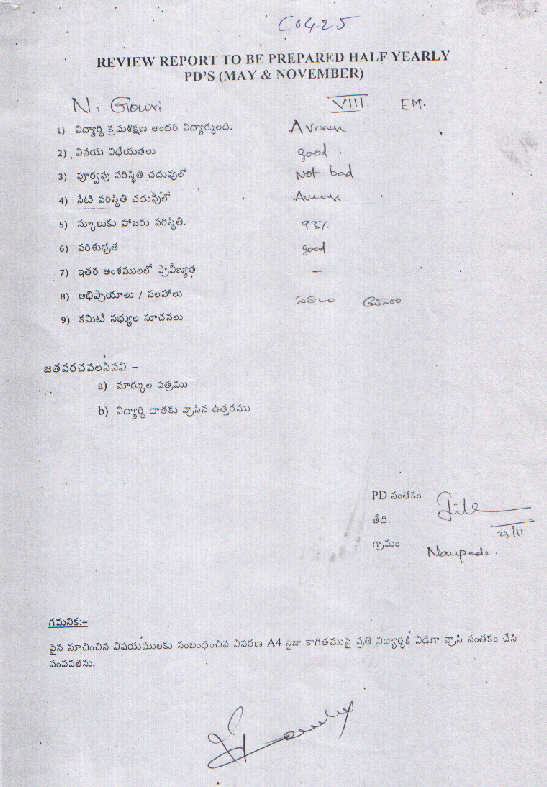 C0425
REVIEW REPORT TO BE PREPARED HALF YEARLY
PD'S (MAY & NOVEMBER)
N. Gowri VIII EM.
1) విద్యార్థి క్రమశిక్షణ అందరి విద్యార్థులది. Average
2) వినయ విధేయతలు good.
3) పూర్వపు పరిస్థితి చదువులో Not bad
4) నేటి పరిస్థితి చదువులో Average
5) స్కూలుకు హాజరు పరిస్థితి. 93%
6) పరిశుభ్రత good
7) ఇతర అంశములలో ప్రావీణ్యత —
8) అభిప్రాయాలు / సలహాలు
9) కమిటీ సభ్యుల సూచనలు
జతపరచవలసినవి –
a) మార్కుల పత్రము
b) విద్యార్థి దాతకు వ్రాసిన ఉత్తరము
PD సంతకం
తేది
గ్రామం Naupada.
గమనిక:–
పైన సూచించిన విషయములకు సంబంధించిన వివరణ A4 సైజు కాగితముపై ప్రతి విద్యార్థికి విడిగా వ్రాసి సంతకం చేసి
పంపవలెను.